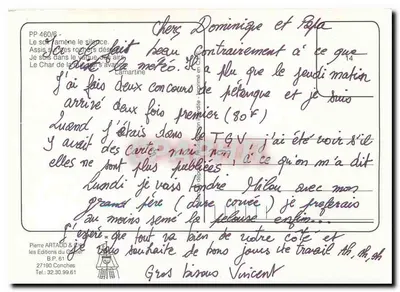 Cherz Dominique et Papa
PP 460/6 -
Le soir ramène le silence.
Assis sur ces rochers déserts
Je suis dans le vague des airs
Le Char de la
Lamartine
Ice il fait beau contrairement à ce que
dist la météo. Il a plu que le jeudi matin
J'ai fais deux concours de pétanque et je suis
14
arrivé deux fois premier (80F)
Quand J'étais dans le TGV j'ai été voir s'il
y avait des carte mai non à ce qu'on m'a dit
elles ne sont plus publiées
Lundi je vais tondre Milou avec mon
grand père (dure corvée) je préferais
au moins semé la pelouse enfin...
J'espère que tout va bien de votre côté et
je vous souhaite de bons jours de travail ah, ah, ah
Gros bisous Vincent
Pierre ARTAUD &
les Editions du
B.P. 61
27190 Conches
Tel : 32.30.99.61